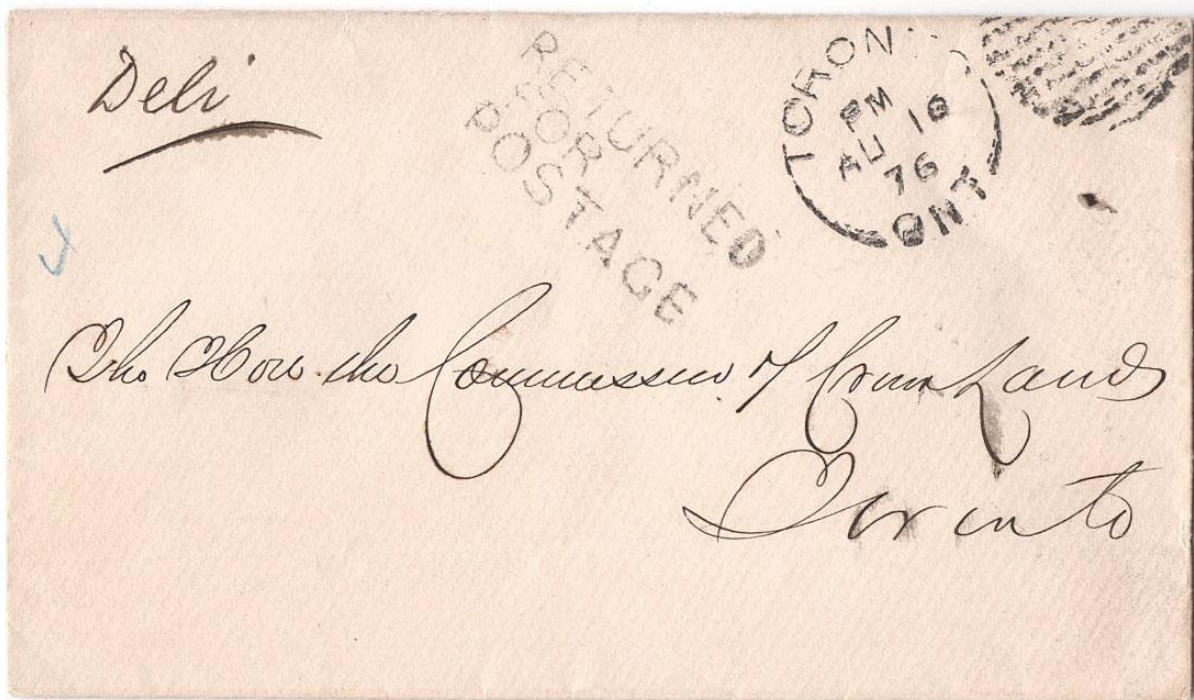 Deli
RETURNED
FOR
POSTAGE
TORON
PM
AU 18
76
ONT
The Hon. the Commissioner of Crown Lands
Toronto